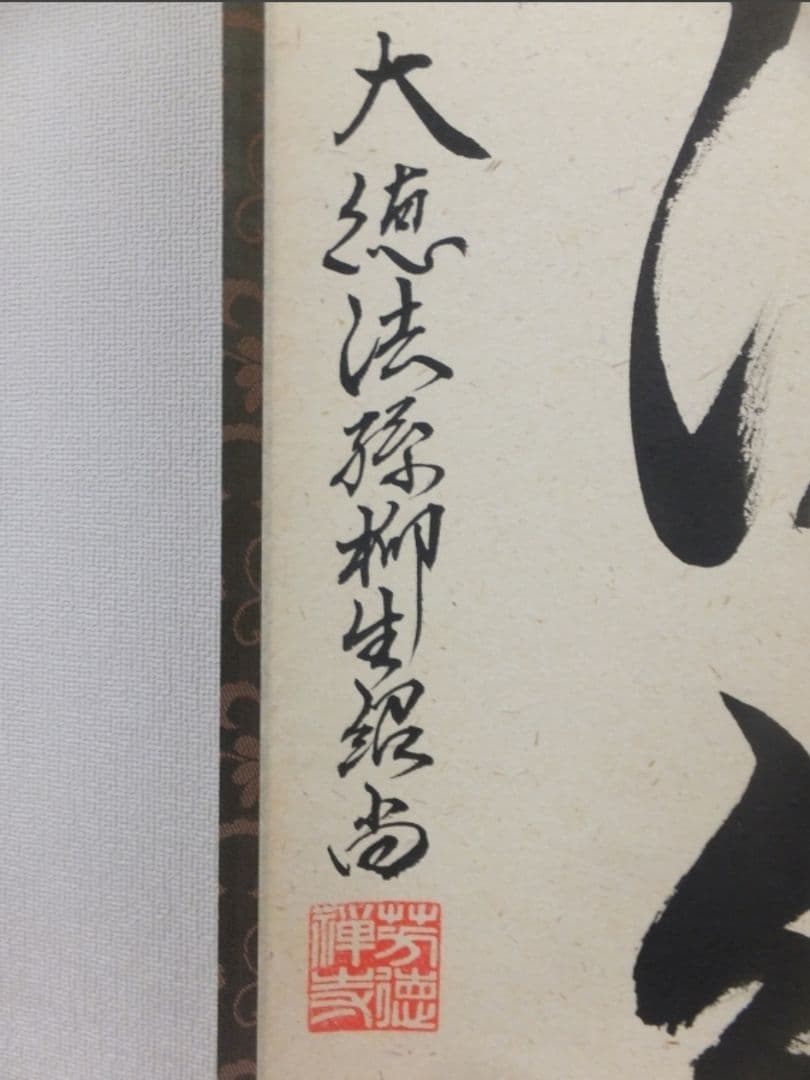 大徳法孫柳生紹尚
芳徳禅寺